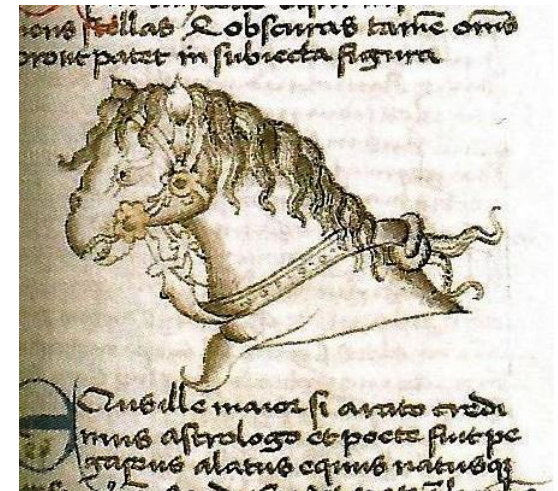 stellas & obscuras tamē
prout patet in subiecta figura
EQus ille maior si arato credi
mus astrologo et poete fuit pe
gasus alatus equus natusqꝫ